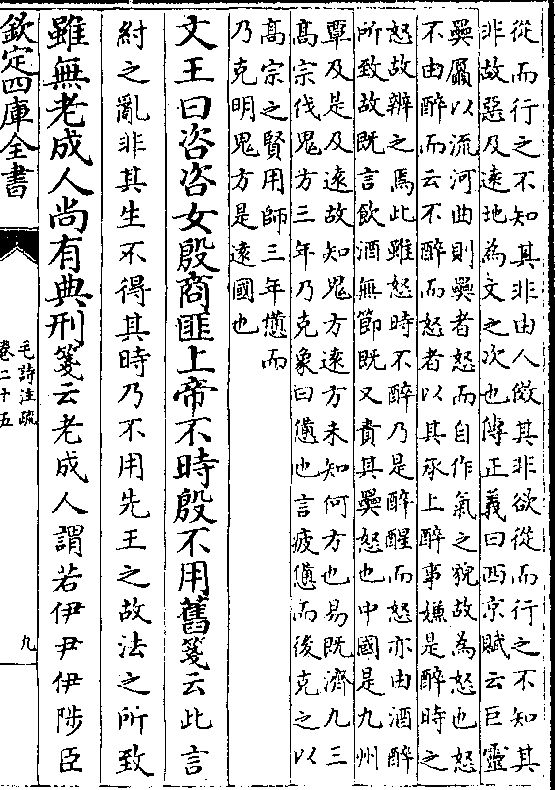 從而行之不知其非由人傚其非欲從而行之不知其
非故惡及遠地為文之次也傳正義曰西京賦云巨靈
奰屭以流河曲則奰者怒而自作氣之貌故為怒也怒
不由醉而云不醉而怒者以其承上醉事嫌是醉時之
怒故辨之焉此雖怒時不醉乃是醉醒而怒亦由酒醉
所致故既言飲酒無節既又責其奰怒也中國是九州
覃及是及遠故知鬼方遠方未知何方也易既濟九三
高宗伐鬼方三年乃克象曰憊也言疲憊而後克之以
高宗之賢用師三年憊而
乃克明鬼方是遠國也
文王曰咨咨女殷商匪上帝不時殷不用舊箋云此言
紂之亂非其生不得其時乃不用先王之故法之所致
雖無老成人尚有典刑箋云老成人謂若伊尹伊陟臣
欽定四庫全書
毛詩注疏
卷二十五
九